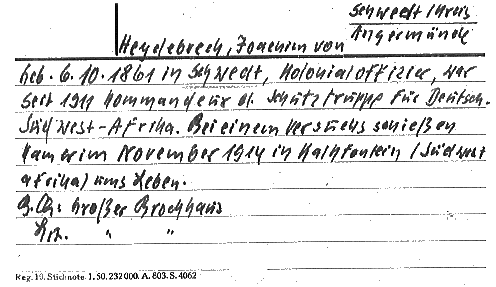 Schwedt Kreis
Angermünde
Heydebreck, Joachim von
Geb. 6.10.1861 in Schwedt, Kolonialoffizier, war
seit 1911 Kommandeur d. Schutztruppe für Deutsch.
Südwest-Afrika. Bei einem Versuchsschießen
kam er im November 1914 in Kalkfontein (Südwest
afrika) ums Leben.
B.Ch: Großer Brockhaus
" "
Reg. 19. Stichnote. 1. 50. 232000. A. 803. S. 4062